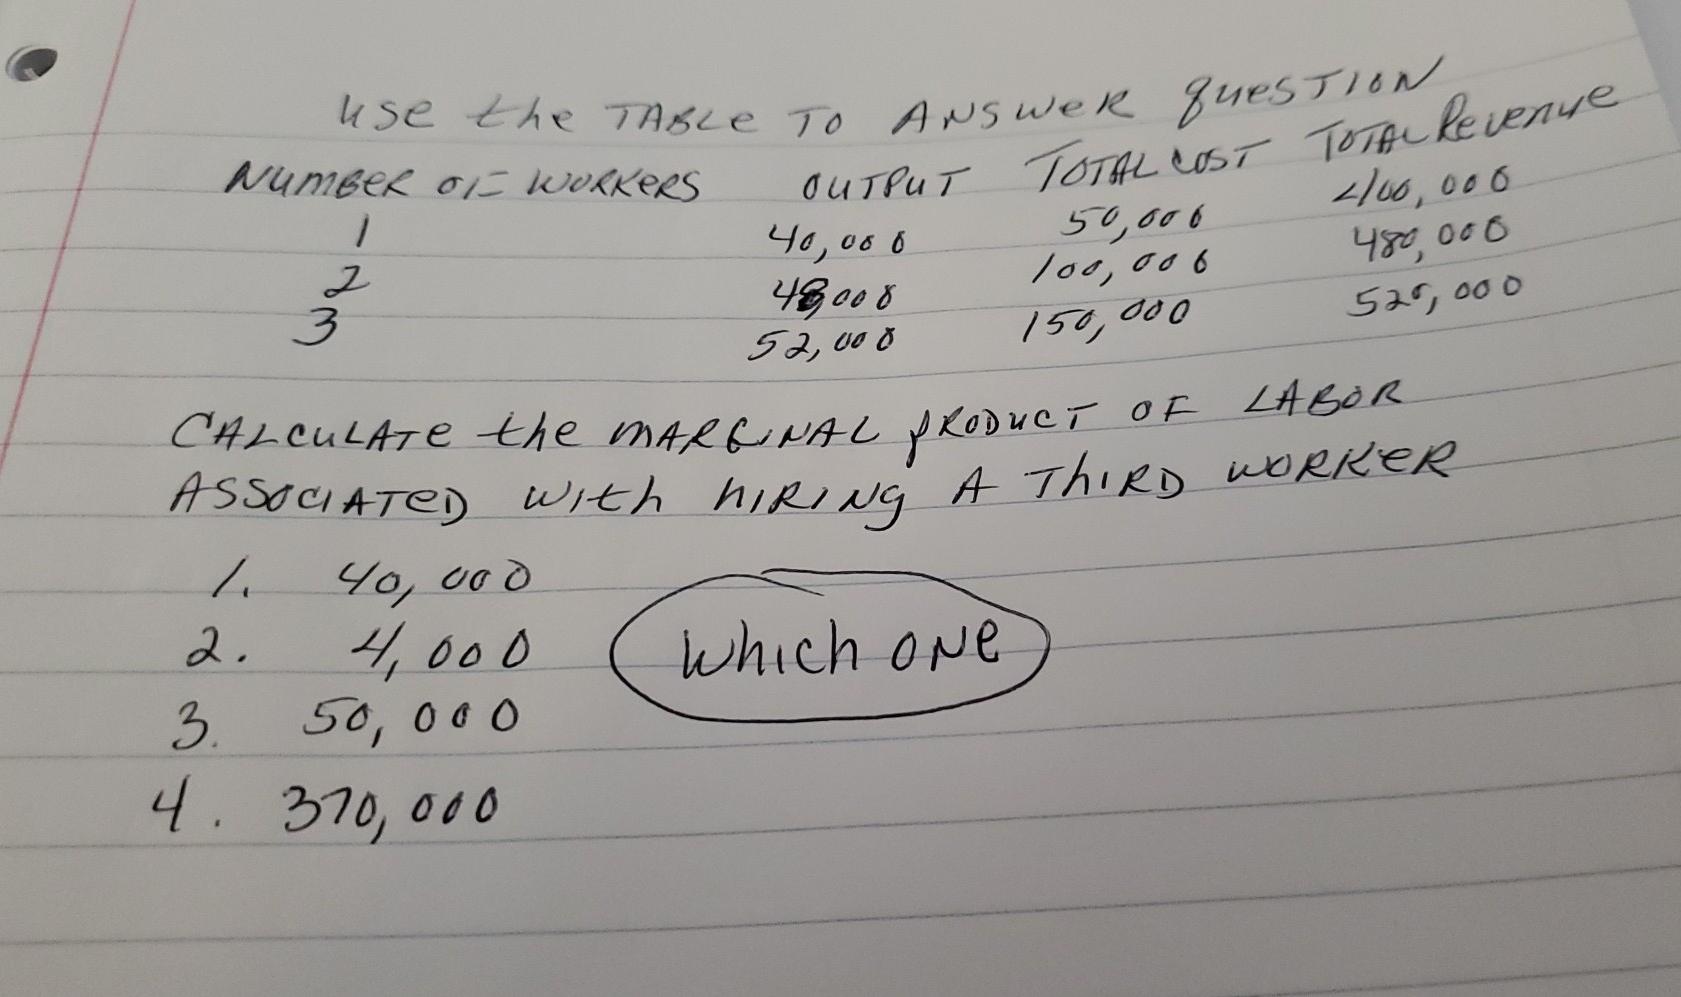 Use the TABLE TO ANSWER QUESTION
NUMBER OF WORKERS OUTPUT TOTAL COST TOTAL Revenue
1 40,000 50,000 400,000
2 48,000 100,000 480,000
3 52,000 150,000 520,000
CALCULATE the MARGINAL PRODUCT OF LABOR
ASSOCIATED WITH HIRING A THIRD WORKER
1. 40,000
2. 4,000
Which ONE
3. 50,000
4. 370,000